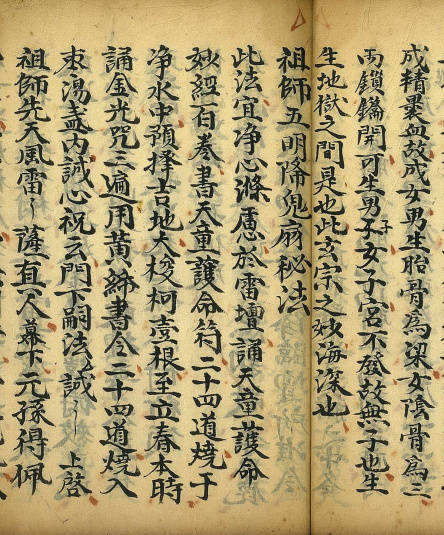 成精裹血故成女男生胎骨爲梁女陰骨爲二
両鎖鑰開可生男子女子宮不發故無子也生
生地獄之間是也此玄宗之妙海深也
祖師五明降鬼扇秘法
此法宜净心滌慮於雷壇誦天童護命
妙經百卷書天童護命符二十四道燒于
净水中預擇吉地大梭柯壹根至立春本時
誦金光咒三遍用黄締書令二十四道燒入
棗湯盞内誠心祝云門下嗣法誠 上啓
祖師先天風雷 薩真人幕下元孫得佩